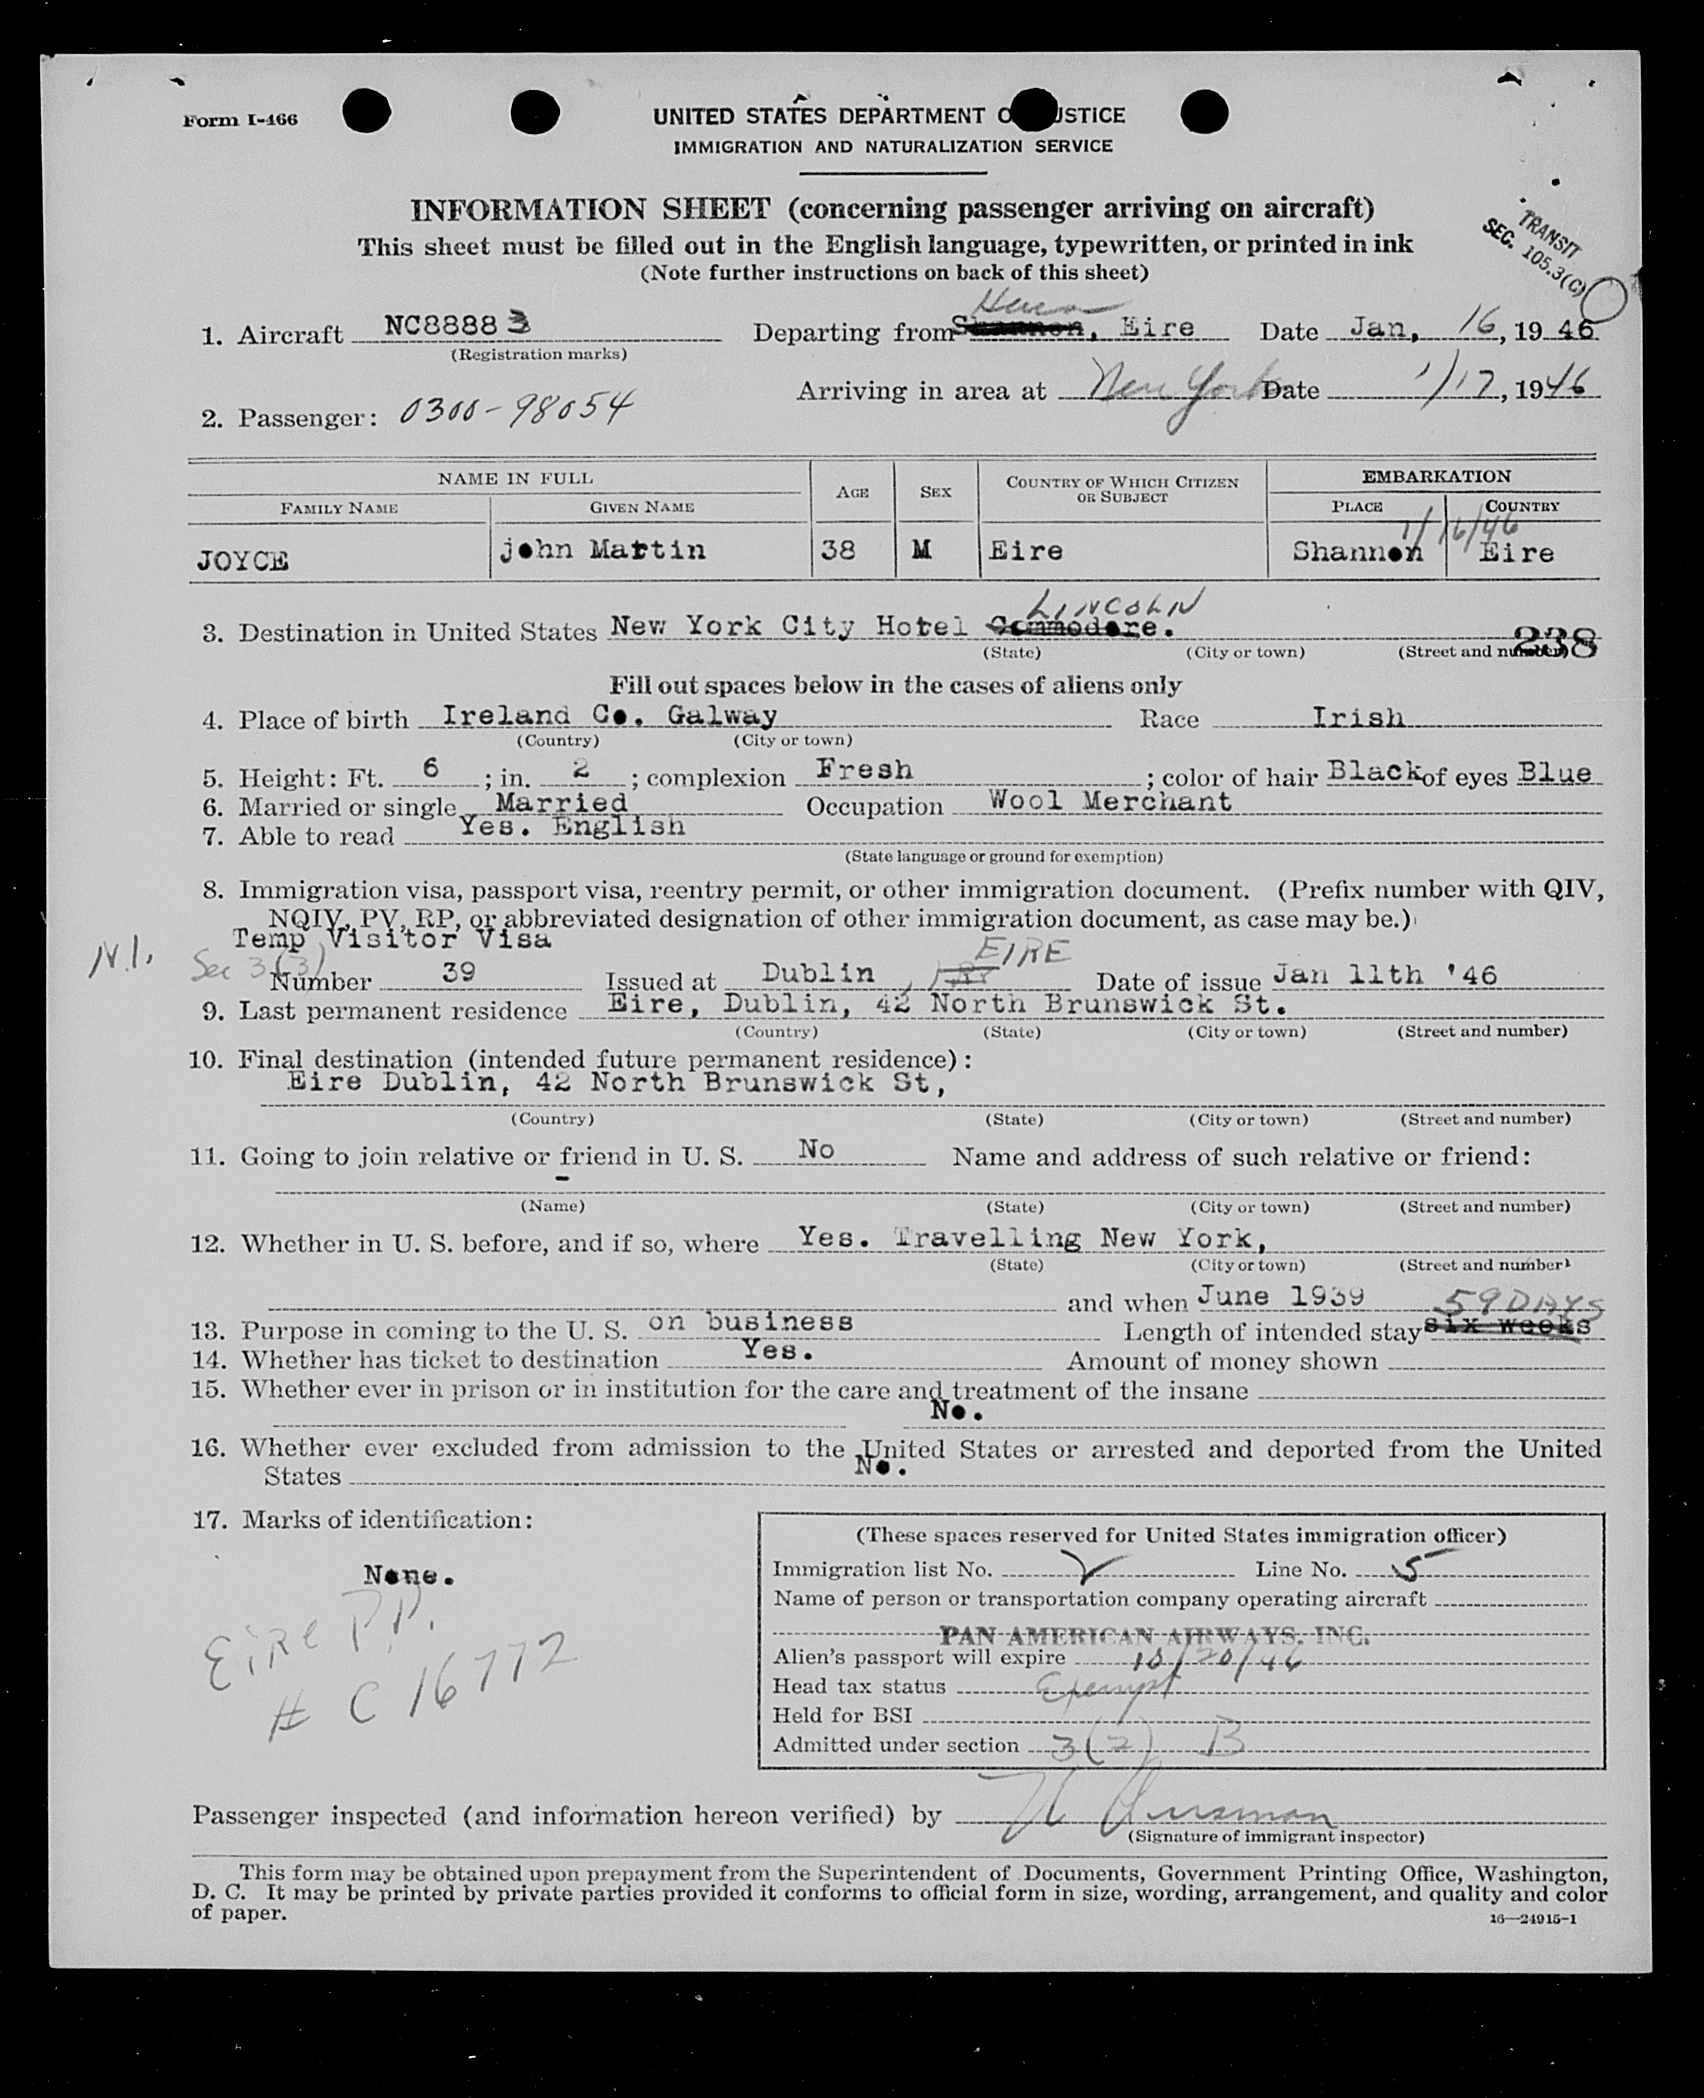 Form I-466
UNITED STATES DEPARTMENT O USTICE
IMMIGRATION AND NATURALIZATION SERVICE
INFORMATION SHEET (concerning passenger arriving on aircraft)
This sheet must be filled out in the English language, typewritten, or printed in ink
(Note further instructions on back of this sheet)
TRANSIT
SEC. 105.3(C)
1. Aircraft NC88883 Departing from Shannon, Eire Date Jan, 16, 19 46
(Registration marks)
Arriving in area at New York Date 1/17, 1946
2. Passenger: 0300-98054
NAME IN FULL AGE SEX COUNTRY OF WHICH CITIZEN OR SUBJECT EMBARKATION
FAMILY NAME GIVEN NAME PLACE COUNTRY
1/16/46
JOYCE john Martin 38 M Eire Shannon Eire
LINCOLN
3. Destination in United States New York City Hotel Commodore.
238
(State) (City or town) (Street and number)
Fill out spaces below in the cases of aliens only
4. Place of birth Ireland Co. Galway Race Irish
(Country) (City or town)
5. Height: Ft. 6 ; in. 2 ; complexion Fresh ; color of hair Black of eyes Blue
6. Married or single Married Occupation Wool Merchant
7. Able to read Yes. English
(State language or ground for exemption)
8. Immigration visa, passport visa, reentry permit, or other immigration document. (Prefix number with QIV,
NQIV, PV, RP, or abbreviated designation of other immigration document, as case may be.)
Temp Visitor Visa
N.I. Sec 3(3) EIRE
Number 39 Issued at Dublin Date of issue Jan 11th '46
9. Last permanent residence Eire, Dublin, 42 North Brunswick St.
(Country) (State) (City or town) (Street and number)
10. Final destination (intended future permanent residence):
Eire Dublin, 42 North Brunswick St,
(Country) (State) (City or town) (Street and number)
11. Going to join relative or friend in U. S. No Name and address of such relative or friend:
-
(Name) (State) (City or town) (Street and number)
12. Whether in U. S. before, and if so, where Yes. Travelling New York,
(State) (City or town) (Street and number)
and when June 1939
59 DAYS
13. Purpose in coming to the U. S. on business Length of intended stay six weeks
14. Whether has ticket to destination Yes. Amount of money shown
15. Whether ever in prison or in institution for the care and treatment of the insane
No.
16. Whether ever excluded from admission to the United States or arrested and deported from the United
States No.
17. Marks of identification:
None.
Eire P.P.
# C 16772
(These spaces reserved for United States immigration officer)
Immigration list No. 2 Line No. 5
Name of person or transportation company operating aircraft
PAN AMERICAN AIRWAYS, INC.
Alien's passport will expire 10/20/46
Head tax status Exempt
Held for BSI
Admitted under section 3(2) B
Passenger inspected (and information hereon verified) by
(Signature of immigrant inspector)
This form may be obtained upon prepayment from the Superintendent of Documents, Government Printing Office, Washington,
D. C. It may be printed by private parties provided it conforms to official form in size, wording, arrangement, and quality and color
of paper.
16—24915-1